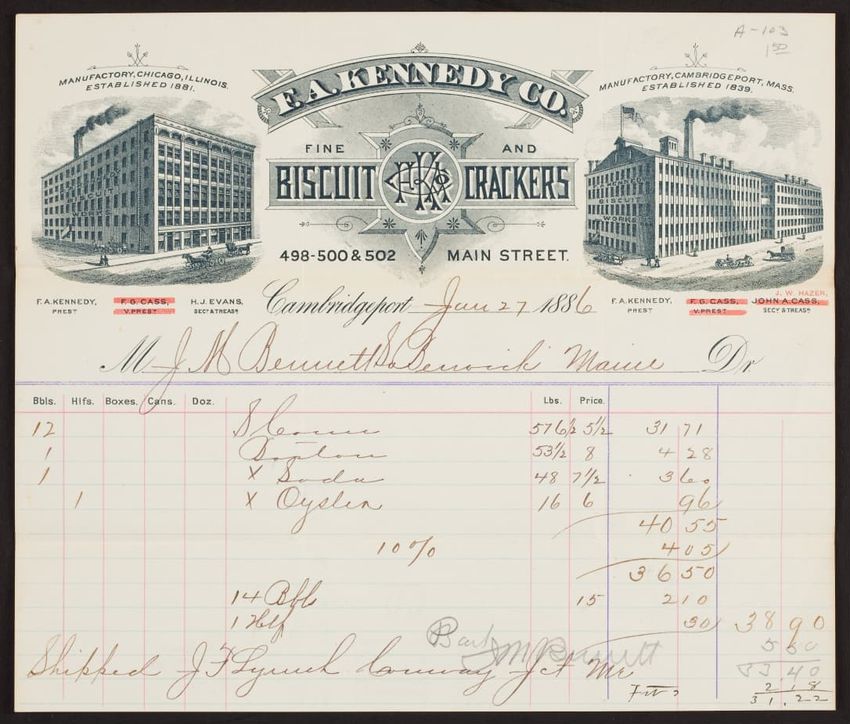 A-103
1 50
MANUFACTORY, CHICAGO, ILLINOIS.
ESTABLISHED 1881.
F. A. KENNEDY CO.
MANUFACTORY, CAMBRIDGEPORT, MASS.
ESTABLISHED 1839.
FINE AND
BISCUIT CRACKERS
BISCUIT
WORKS
498-500 & 502 MAIN STREET.
F. A. KENNEDY, PREST
F. G. CASS, V. PREST
H. J. EVANS, SECY & TREAS
Cambridgeport Jan 27 1886
F. A. KENNEDY, PREST
F. G. CASS, V. PREST
J. W. HAZEN,
JOHN A. CASS, SECY & TREAS
M J M Bennett So Berwick Maine Dr
Bbls. Hlfs. Boxes. Cans. Doz. Lbs. Price.
12 S 576 1/2 5 1/2 31 71
1 Boston 53 1/2 8 4 28
1 x Soda 48 7 1/2 3 60
1 x Oyster 16 6 96
40 55
10% 4 05
36 50
14 Bbls 15 2 10
1 Hlf 30 38 90
J M Bennett 5 50
Shipped J F Lynch Conway Jct Me 33 40
2.18
31.22